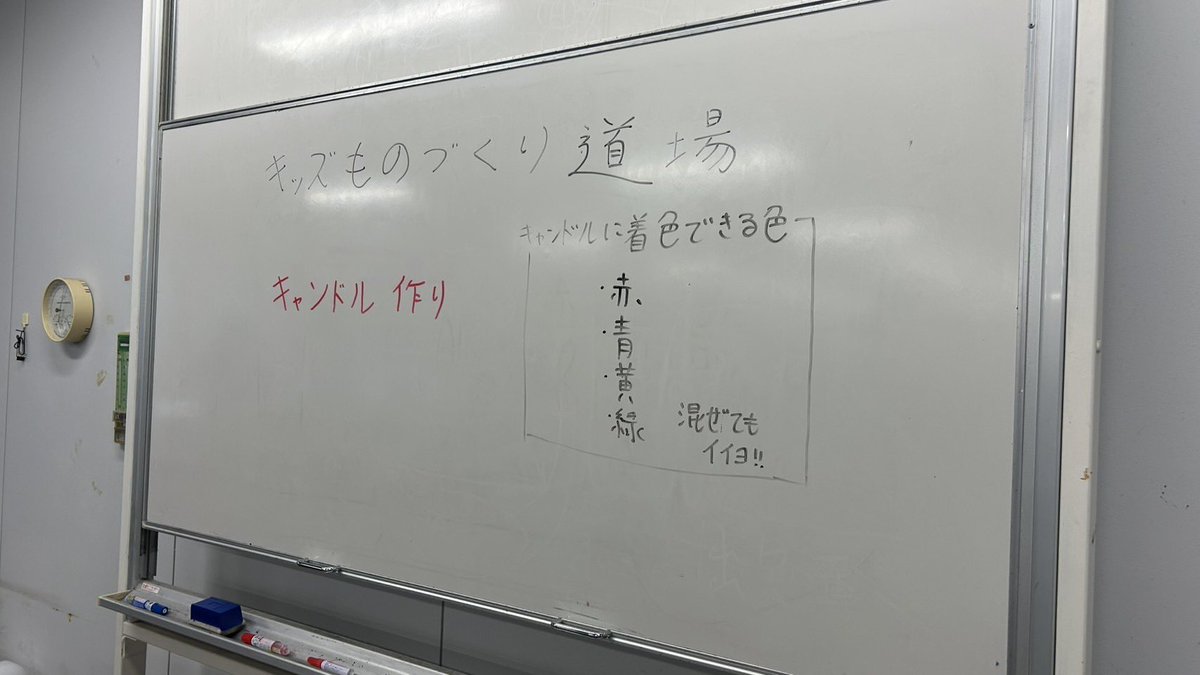 キッズものづくり道場
キャンドル作り
キャンドルに着色できる色
・赤
・青
・黄
・緑
混ぜても
イイヨ!!